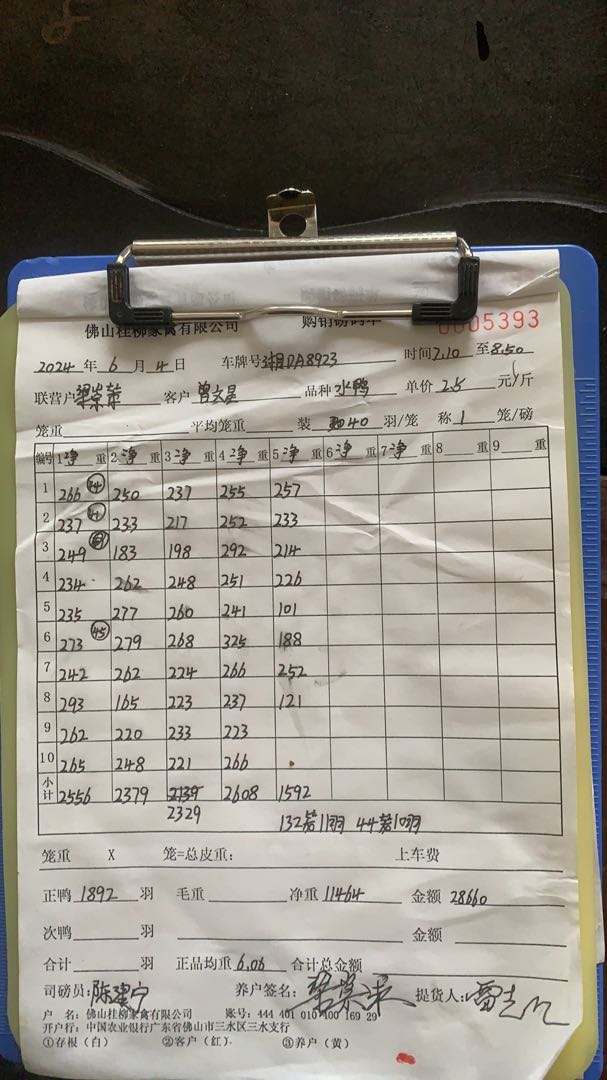 佛山桂柳家禽有限公司 购销磅码单 0005393
2024 年 6 月 4 日 车牌号 湘DA8923 时间 7.10 至 8.50
联营户 客户 曾文星 品种 水鸭 单价 2.5 元/斤
笼重 平均笼重 装 40 羽/笼 称 1 笼/磅
编号 1 净 重 2 净 重 3 净 重 4 净 重 5 净 重 6 净 重 7 净 重 8 重 9 重
1 266 250 237 255 257
2 237 41 233 217 252 233
3 249 183 198 292 214
4 234 262 248 251 226
5 235 277 260 241 101
6 273 45 279 268 325 188
7 242 262 224 266 252
8 293 165 223 237 121
9 262 220 233 223
10 265 248 221 266
小计 2556 2379 2139 2608 1592
2329 132第11羽 44第10羽
笼重 X 笼=总皮重: 上车费
正鸭 1892 羽 毛重 净重 11464 金额 28660
次鸭 羽 金额
合计 羽 正品均重 6.06 合计总金额
司磅员: 陈建宁 养户签名: 提货人:
户 名: 佛山桂柳家禽有限公司 账号: 444 401 010 400 169 29
开户行: 中国农业银行广东省佛山市三水区三水支行
①存根(白) ②客户(红) ③养户(黄)